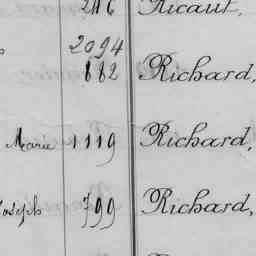 Ricaut,
2094
882 Richard,
Marie 1119 Richard,
Joseph 799 Richard,